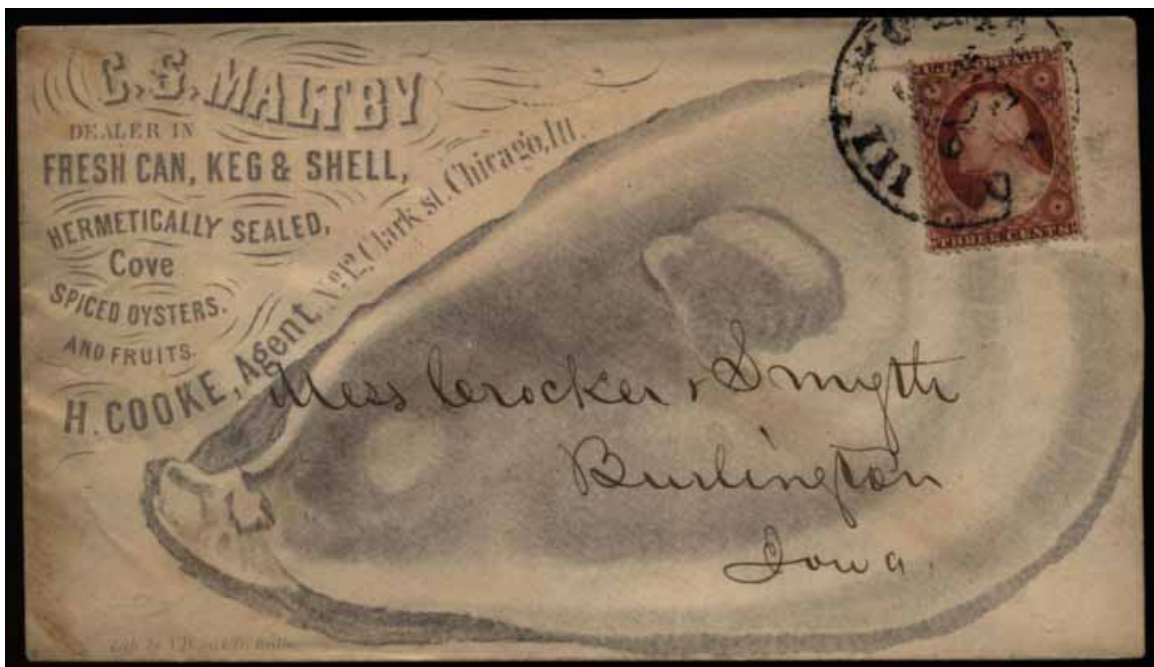 C. S. MALTBY
DEALER IN
FRESH CAN, KEG & SHELL,
HERMETICALLY SEALED,
Cove
SPICED OYSTERS.
AND FRUITS.
H. COOKE, Agent, No. 12, Clark st. Chicago, Ill.
U.S. POSTAGE
THREE CENTS
Mess Crocker & Smyth
Burlington
Iowa.